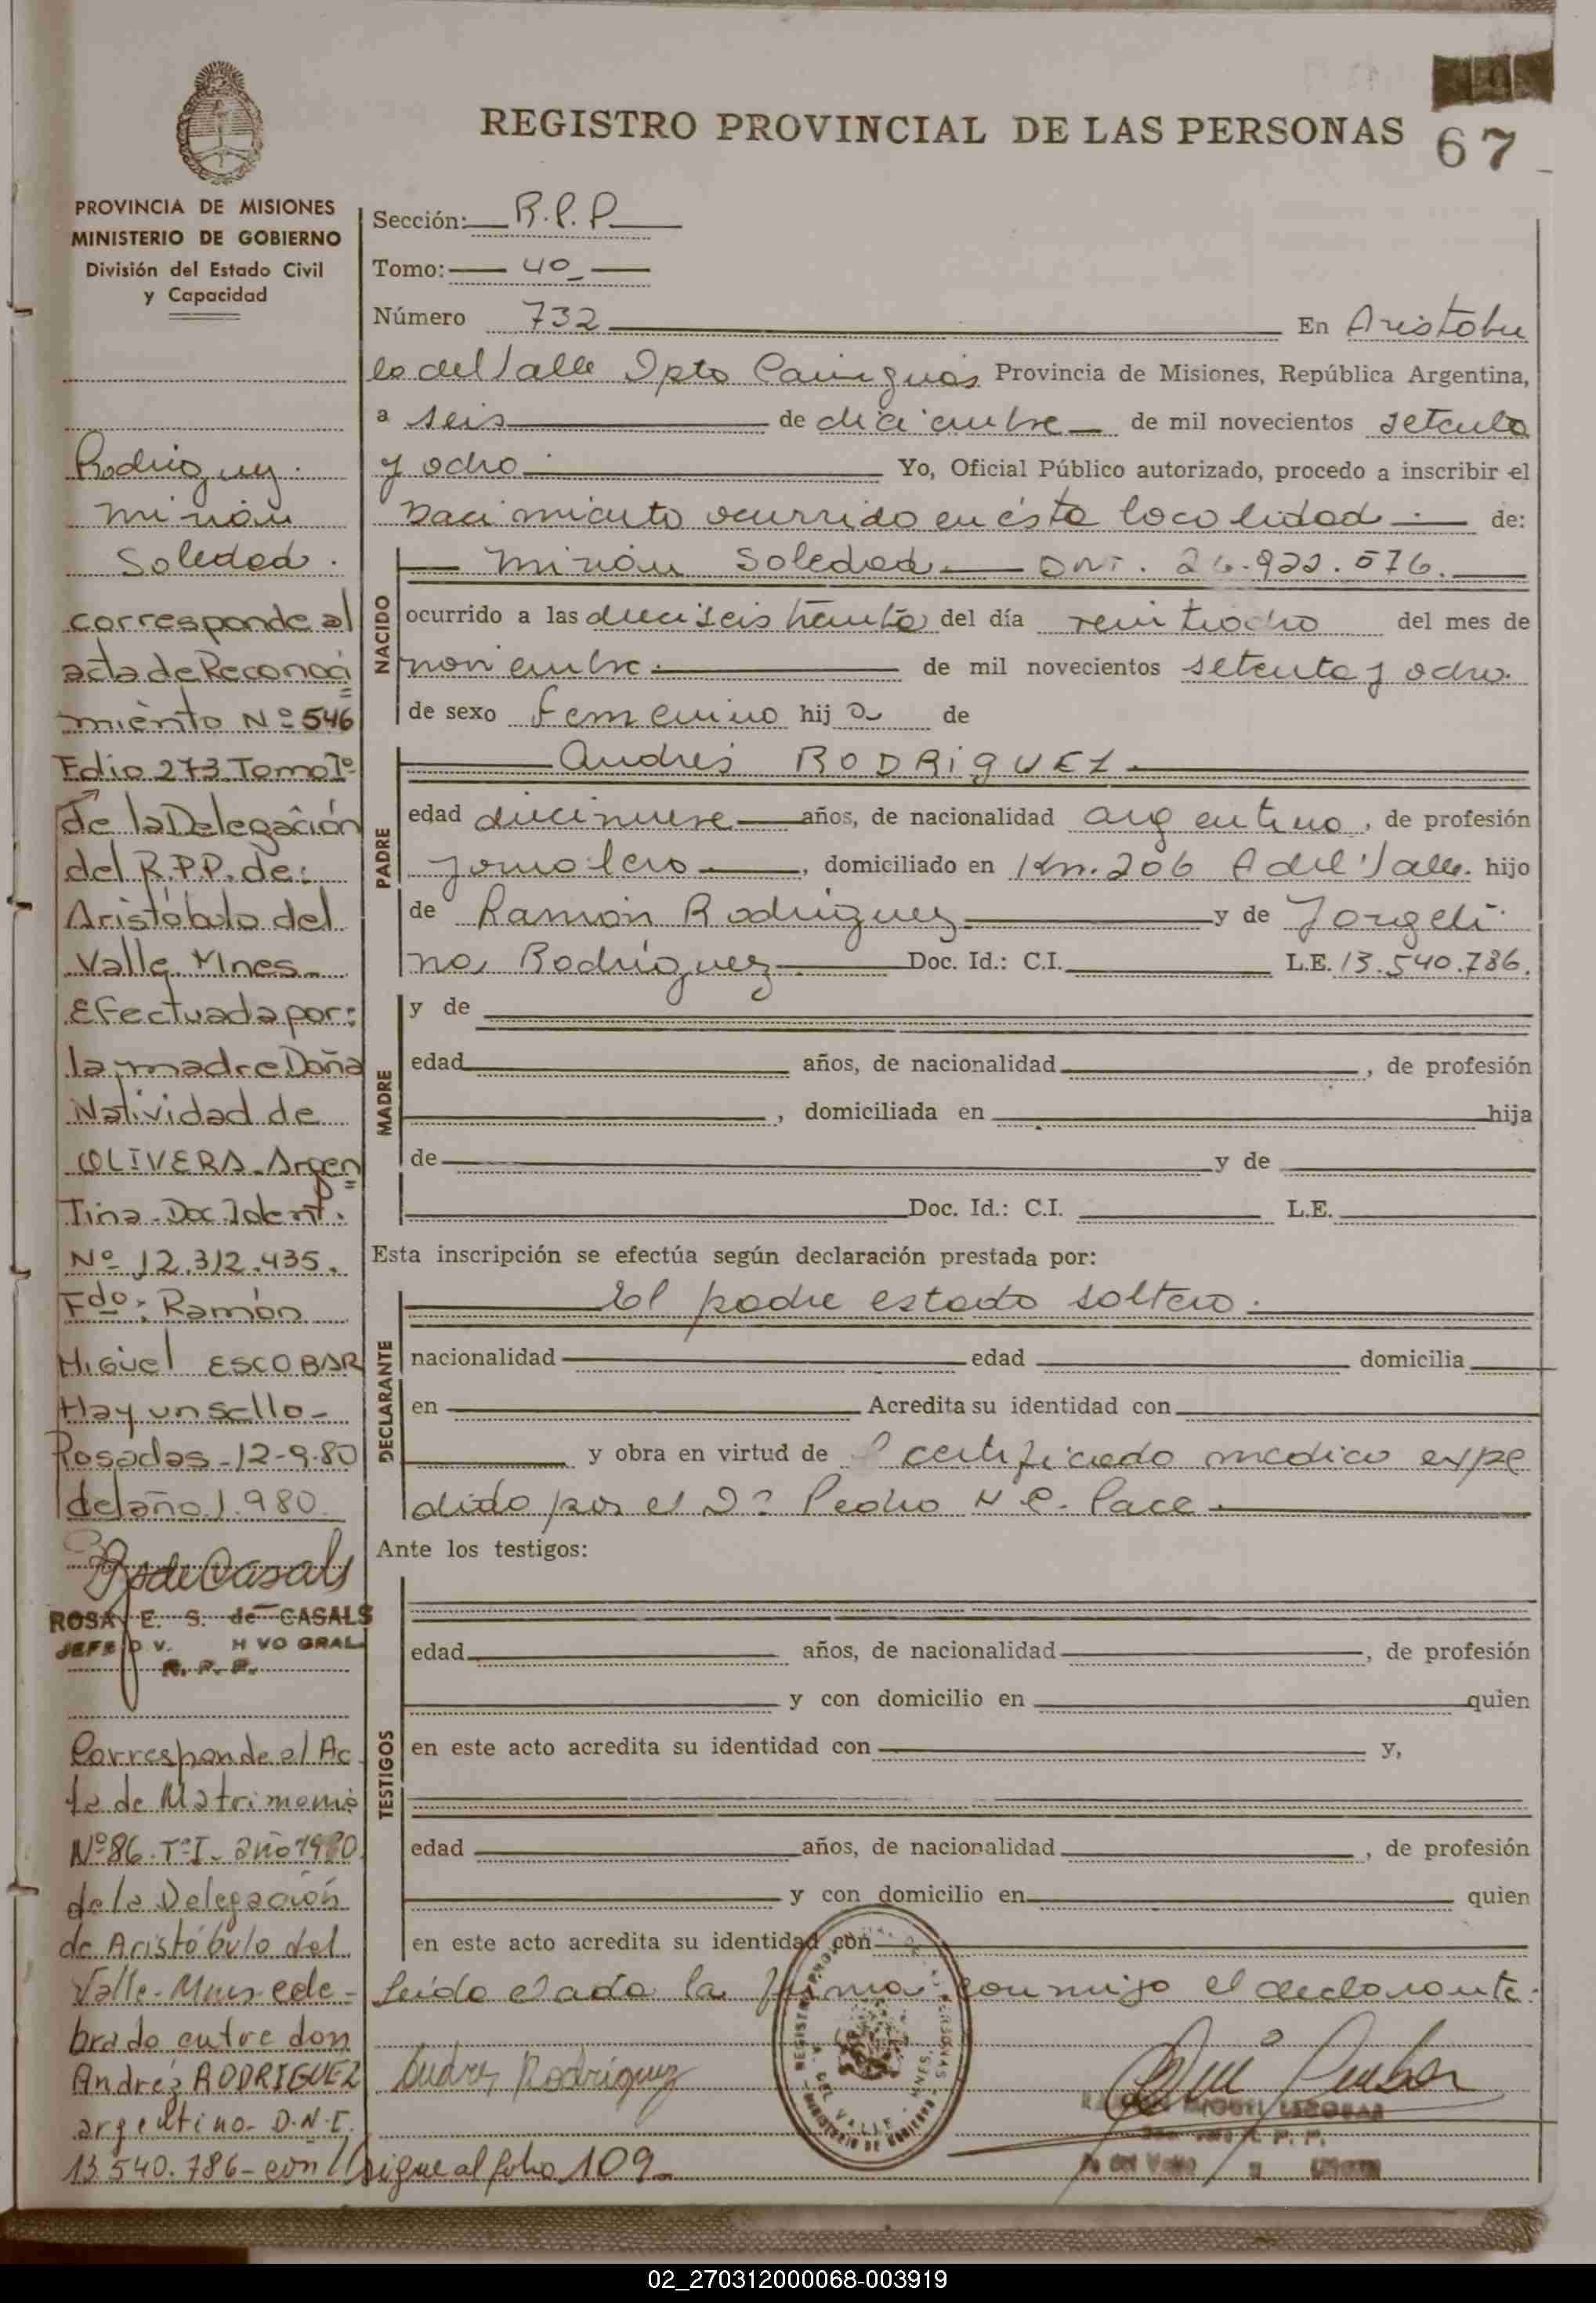 REGISTRO PROVINCIAL DE LAS PERSONAS
67
PROVINCIA DE MISIONES
MINISTERIO DE GOBIERNO
División del Estado Civil
y Capacidad
Rodriguez
Mirian
Soledad.
corresponde al
acta de Reconoci
miento Nº 546
Folio 273 Tomo 1º
de la Delegación
del R.P.P. de:
Aristóbulo del
Valle Mnes.
Efectuada por:
la madre Doña
Natividad de
OLIVERA - Argen
Tina - Doc. Ident.
Nº 12.312.435.
Fdo: Ramón
Miguel ESCOBAR
Hay un sello -
Posadas - 12-9-80
del año 1.980
ROSA E. S. de CASALS
JEFE
R. P. P.
Corresponde al Ac
ta de Matrimonio
Nº 86 - Tº I - año 1980
de la Delegación
de Aristóbulo del
Valle - Mnes cele -
brado entre don
Andrés RODRIGUEZ
argentino - D.N.I.
13.540.786 - con //
Sección: R.P.P
Tomo: 40
Número 732 En Aristobu
lo del Valle Dpto Cainguás Provincia de Misiones, República Argentina,
a seis de diciembre de mil novecientos setenta
y ocho Yo, Oficial Público autorizado, procedo a inscribir el
nacimiento ocurrido en ésta localidad de:
NACIDO
Mirián Soledad DNI. 26.922.576.
ocurrido a las dieciseis treinta del día veintiocho del mes de
noviembre de mil novecientos setenta y ocho.
de sexo Femenino hij a de
PADRE
Andrés RODRIGUEZ
edad diecinueve años, de nacionalidad argentino, de profesión
jornalero, domiciliado en Km. 206 A del Valle. hijo
de Ramón Rodriguez y de Jorgeli
na Rodriguez Doc. Id.: C.I. L.E. 13.540.786.
MADRE
y de
edad años, de nacionalidad, de profesión
, domiciliada en hija
de y de
Doc. Id.: C.I. L.E.
Esta inscripción se efectúa según declaración prestada por:
DECLARANTE
El padre estado soltero.
nacionalidad edad domicilia
en Acredita su identidad con
y obra en virtud de certificado medico expe
dido por el Dr Pedro N C. Pace
Ante los testigos:
TESTIGOS
edad años, de nacionalidad, de profesión
y con domicilio en quien
en este acto acredita su identidad con y,
edad años, de nacionalidad, de profesión
y con domicilio en quien
en este acto acredita su identidad con
Leída el acta la firma conmigo el declarante.
Andres Rodriguez
RAMON MIGUEL ESCOBAR
sigue al folio 109
02_270312000068-003919